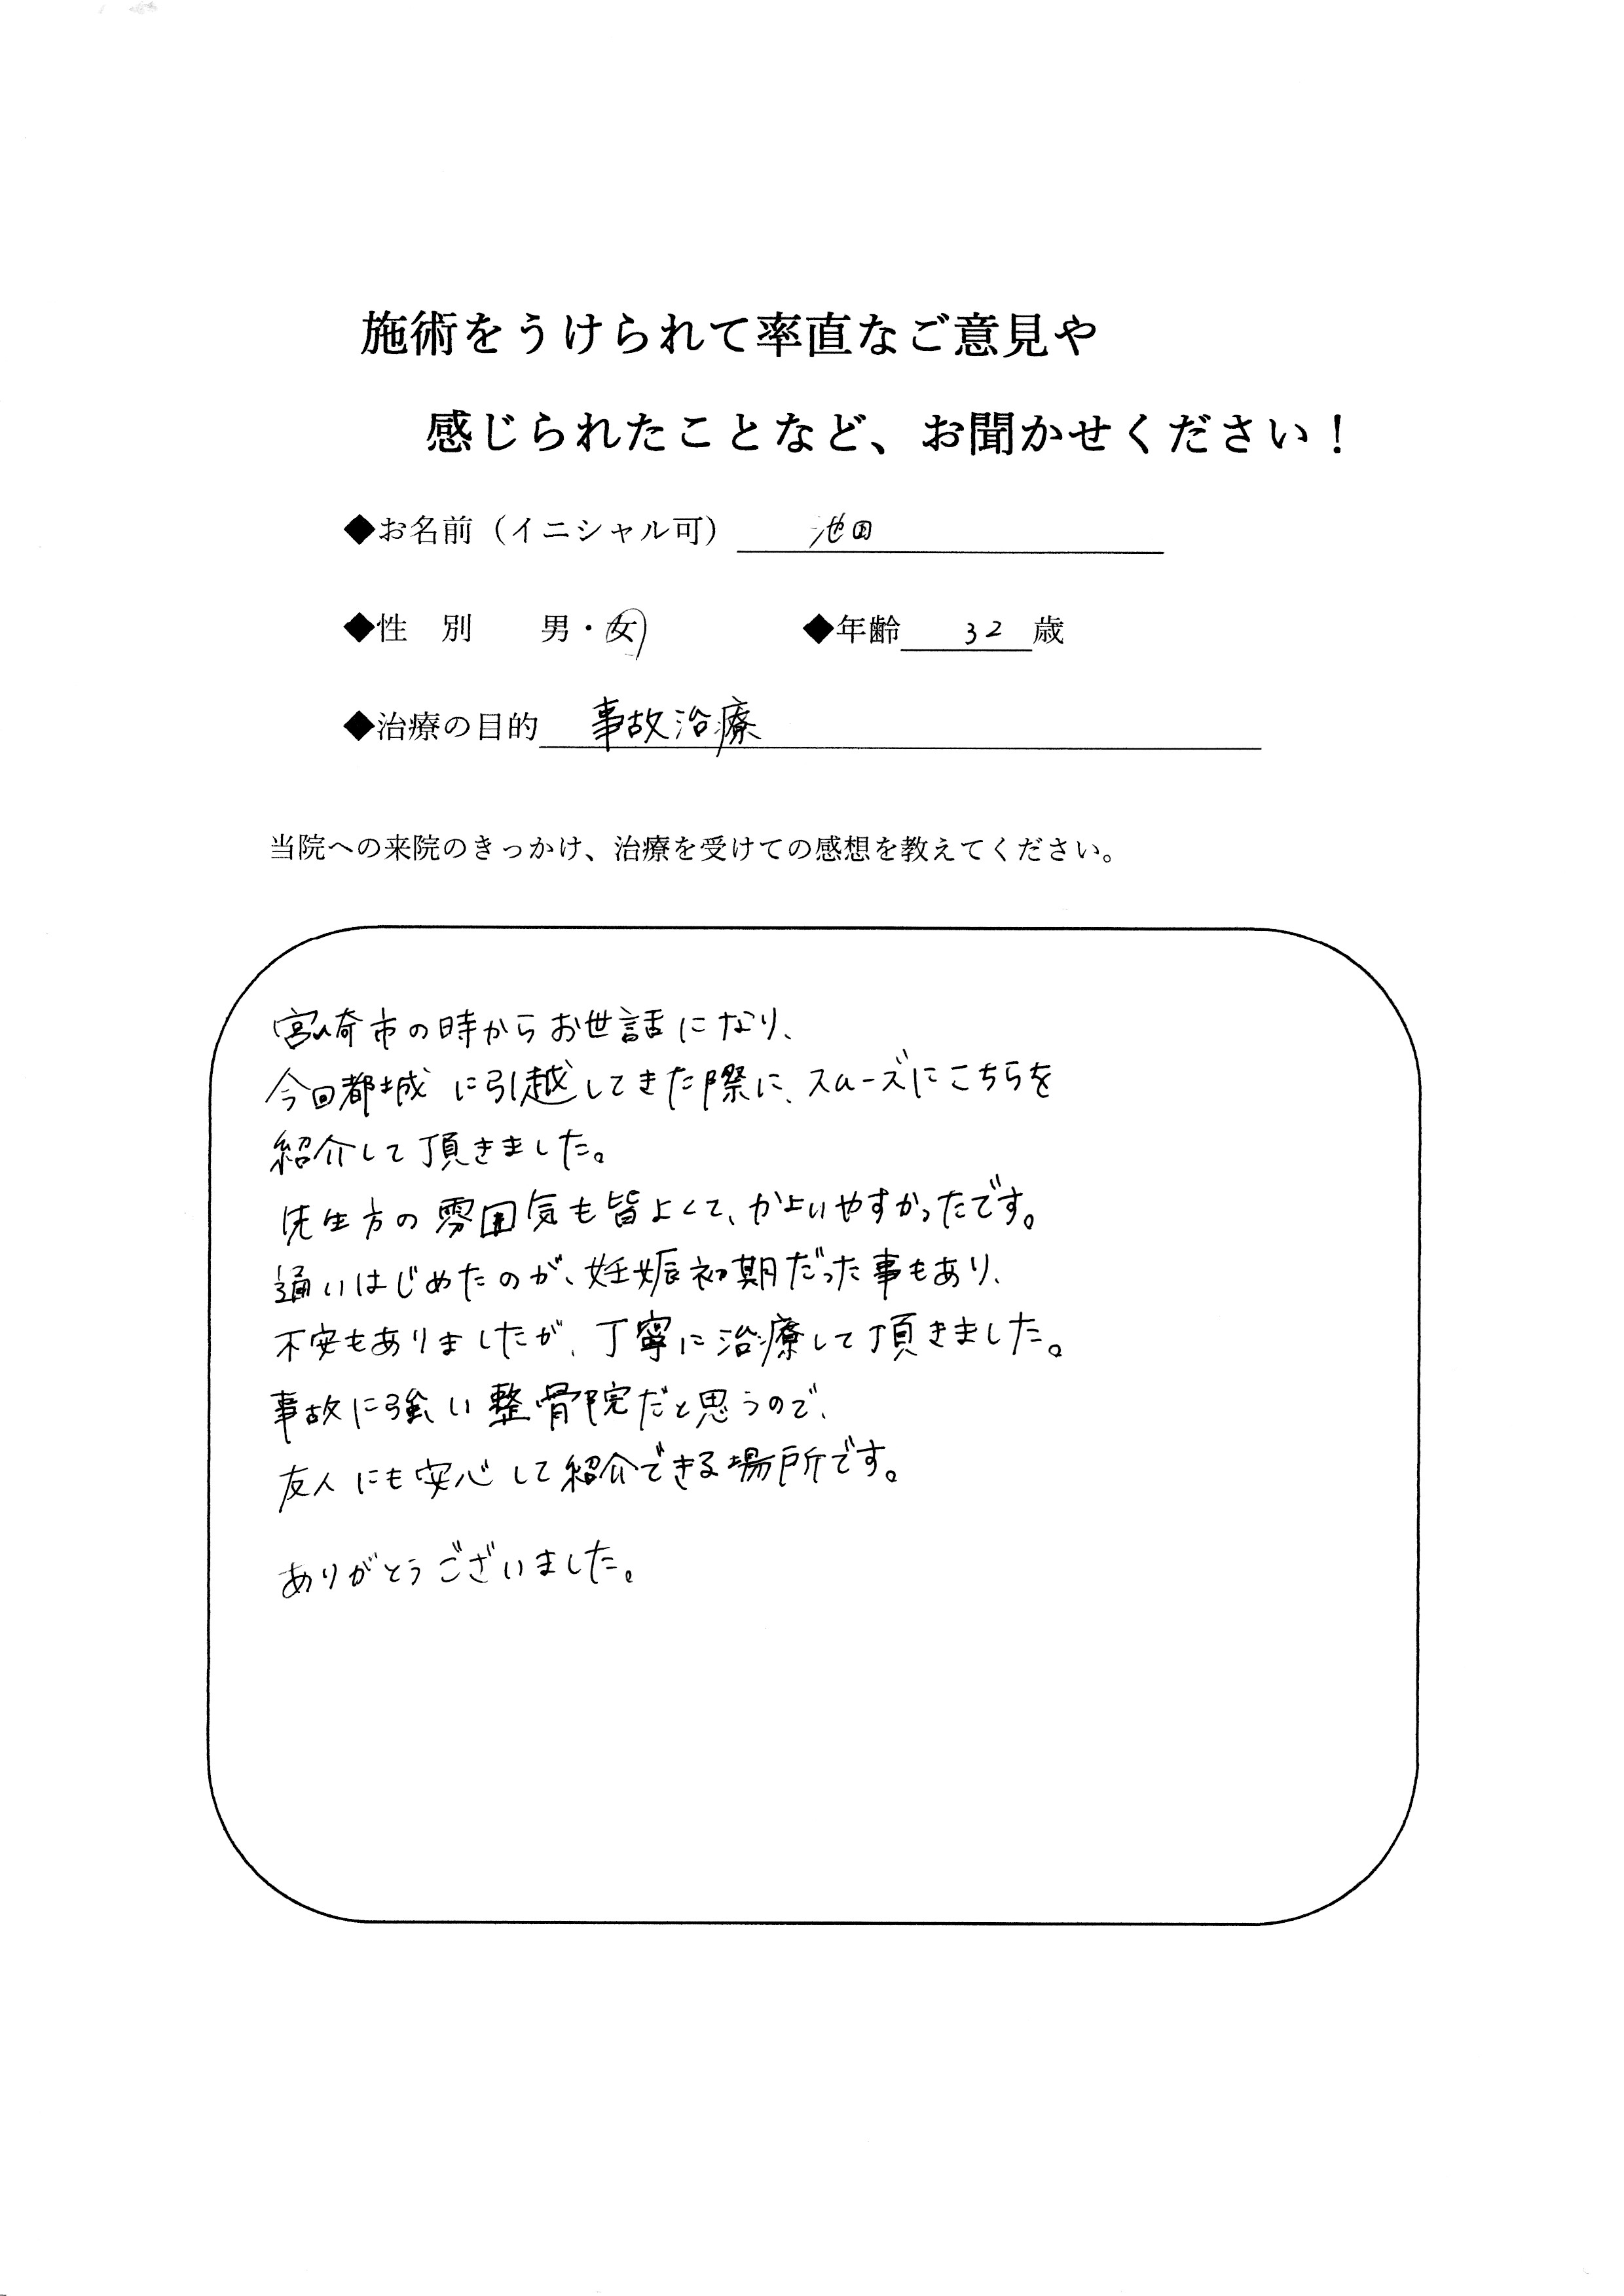 施術をうけられて率直なご意見や
感じられたことなど、お聞かせください！
◆お名前（イニシャル可） 池田
◆性　別　男・女　◆年齢 32 歳
◆治療の目的 事故治療
当院への来院のきっかけ、治療を受けての感想を教えてください。
宮崎市の時からお世話になり、
今回都城に引越してきた際に、スムーズにこちらを
紹介して頂きました。
先生方の雰囲気も皆よくて、かよいやすかったです。
通いはじめたのが、妊娠初期だった事もあり、
不安もありましたが、丁寧に治療して頂きました。
事故に強い整骨院だと思うので、
友人にも安心して紹介できる場所です。
ありがとうございました。